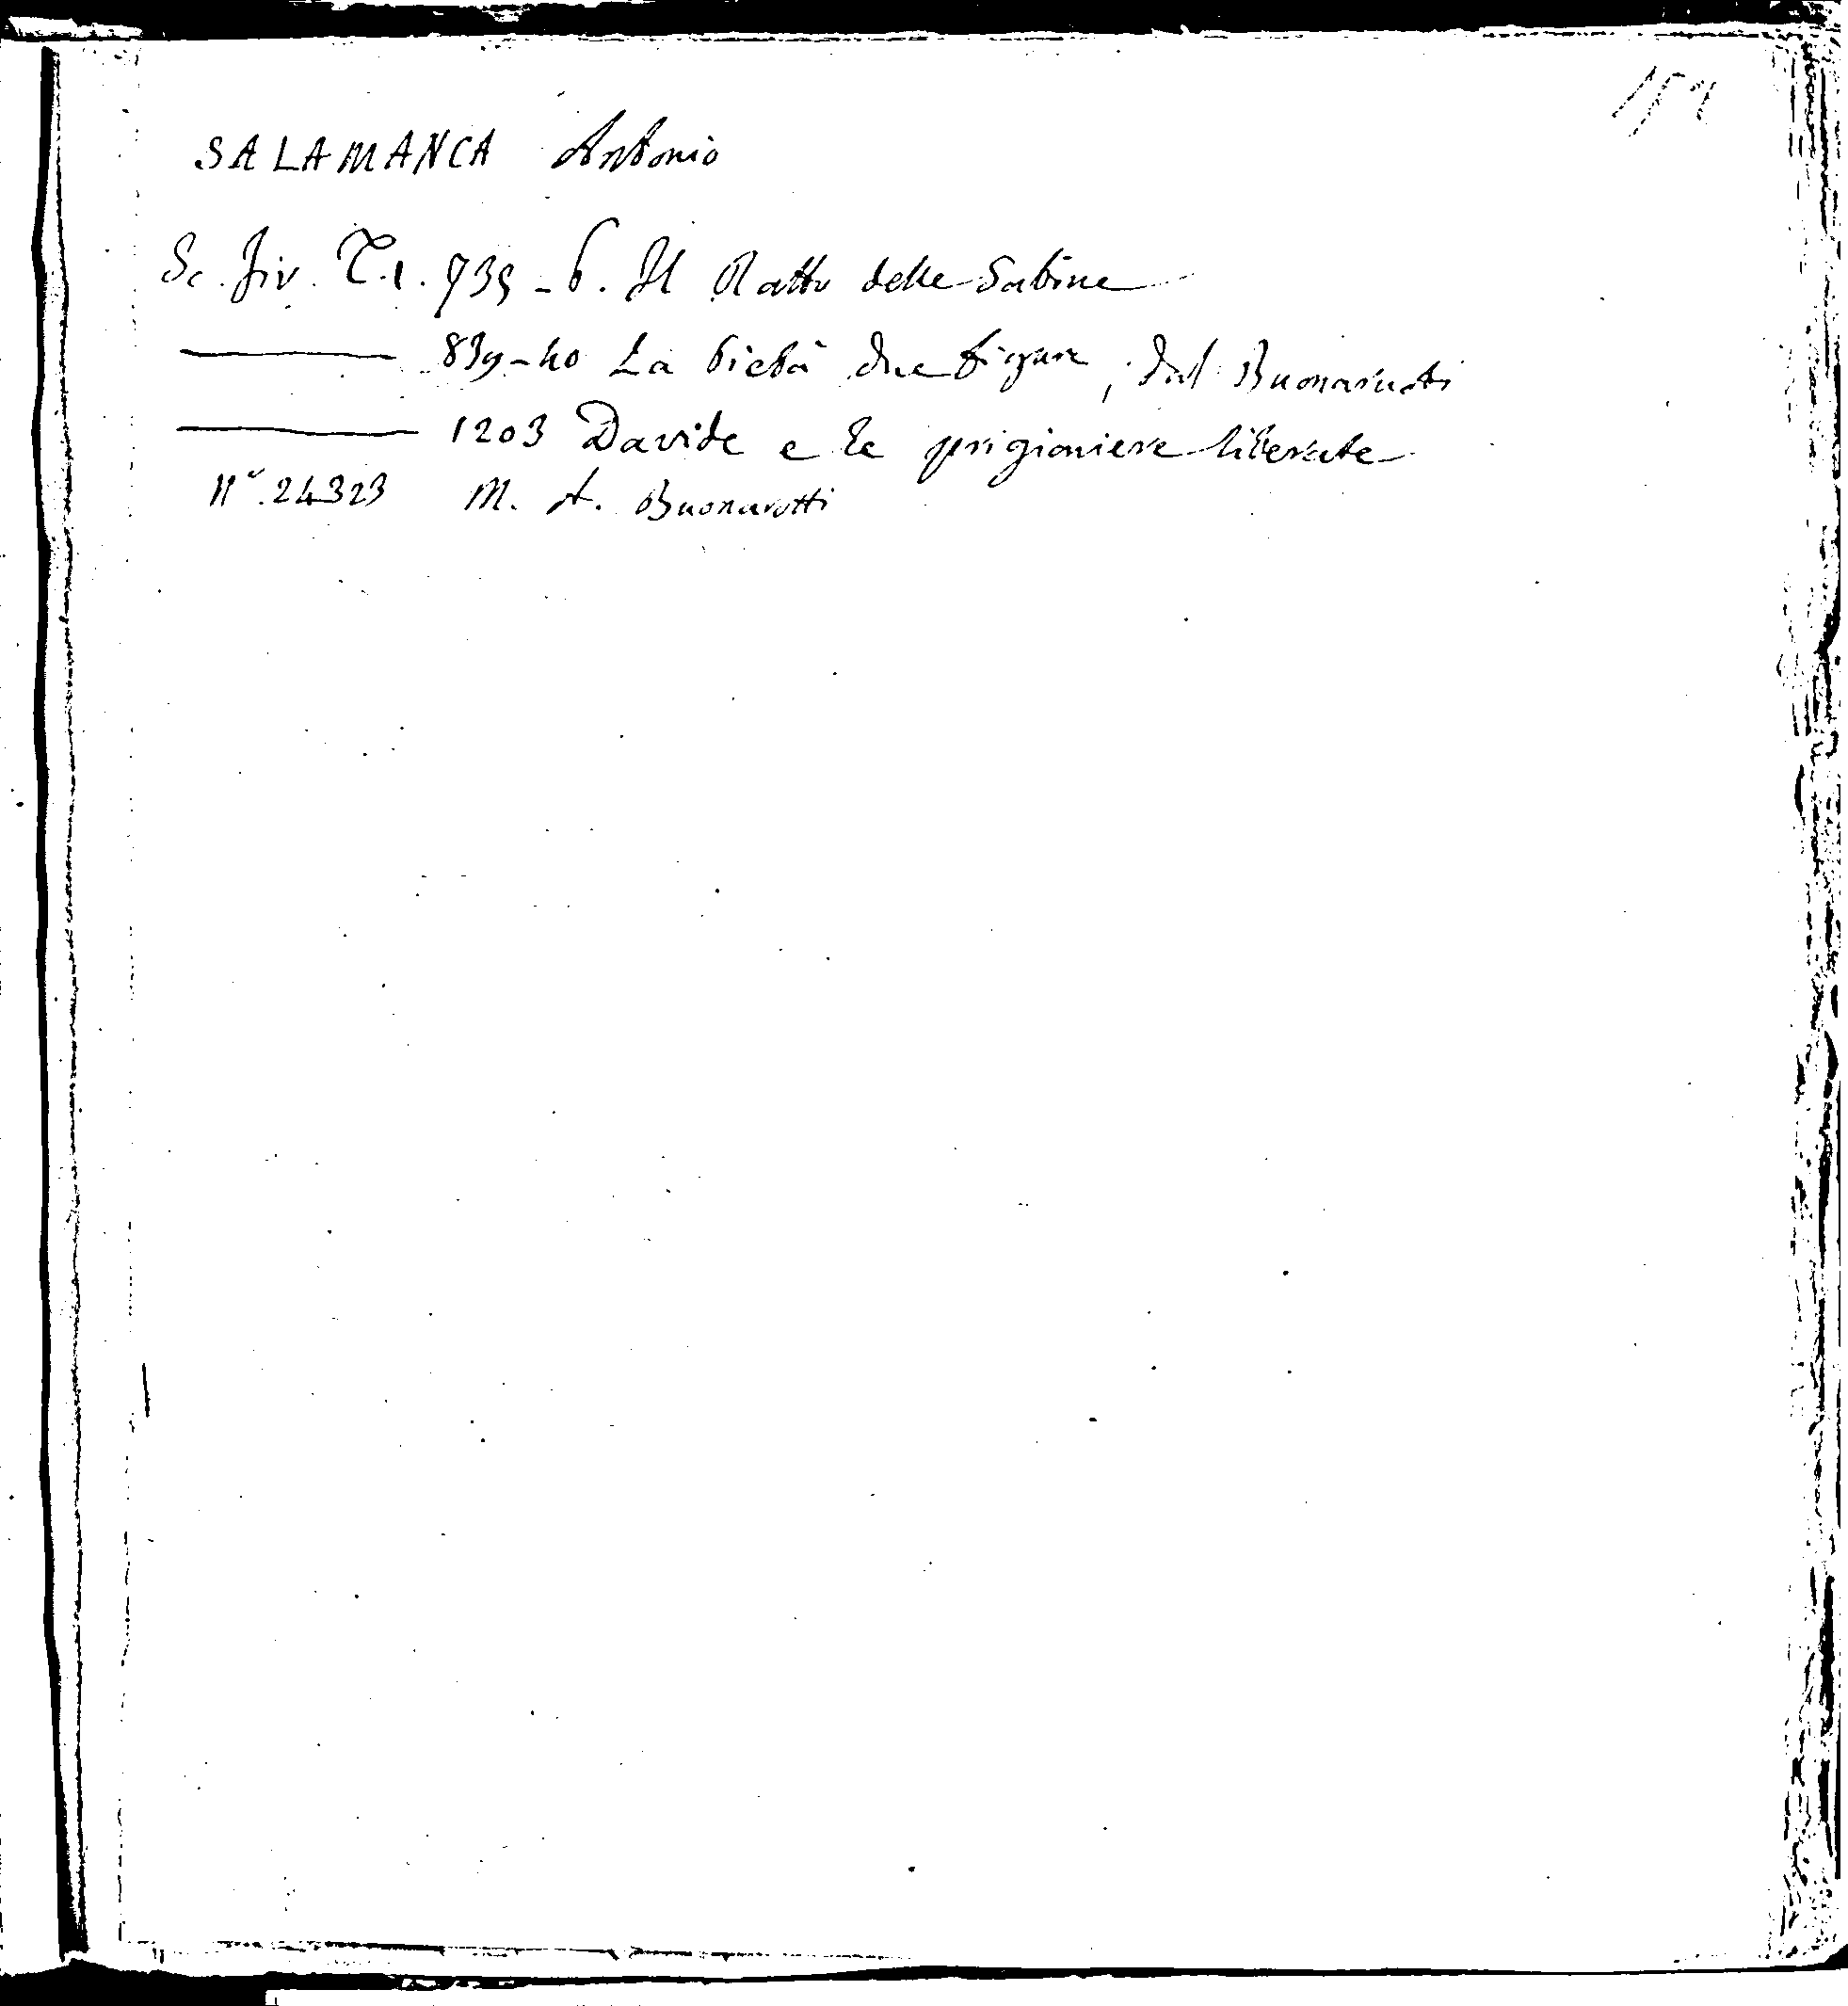 SALAMANCA Antonio
Sc. Fiv. T.1. 735-6. Il Ratto delle Sabine
——— 839-40 La Pietà due figure, dal Buonaruoti
——— 1203 Davide e le prigioniere liberate
N°. 24323 M. A. Buonarotti